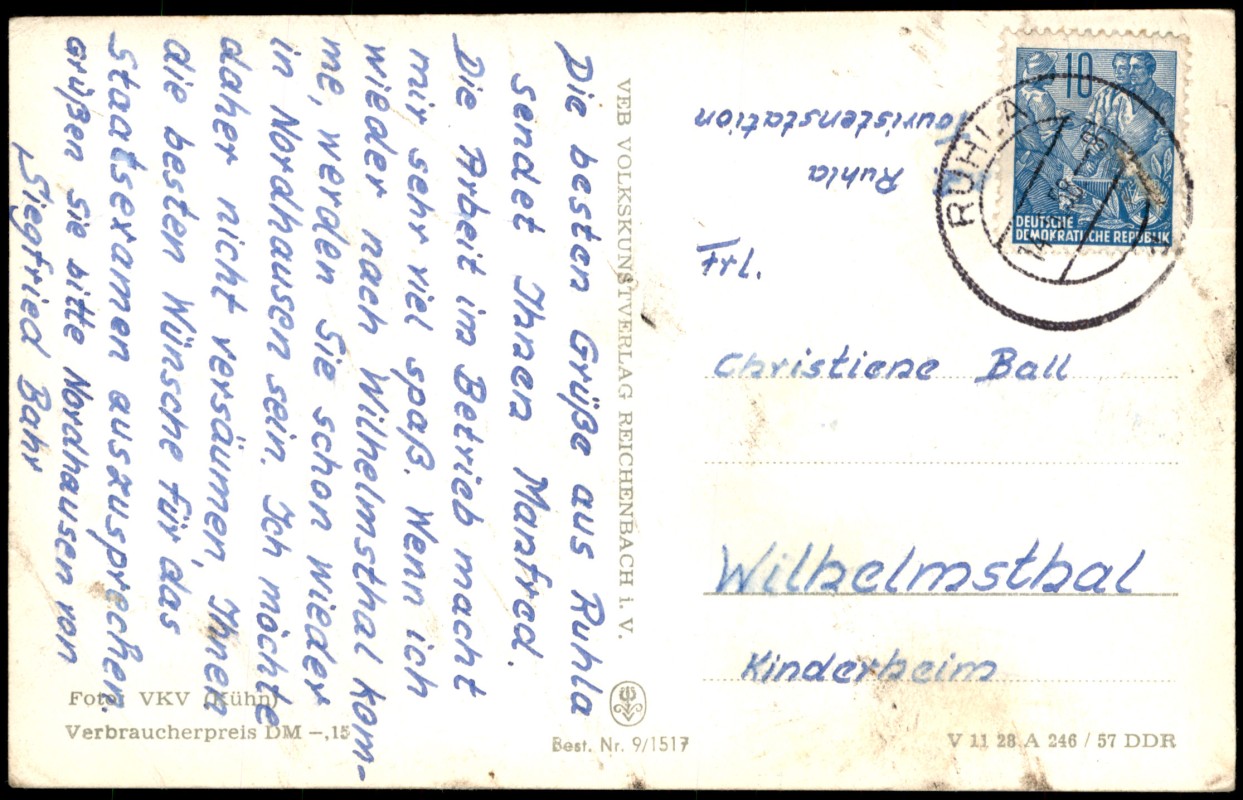 Die besten Grüße aus Ruhla
sendet Ihnen Manfred.
Die Arbeit im Betrieb macht
mir sehr viel spaß. Wenn ich
wieder nach Wilhelmsthal kom-
me, werden Sie schon wieder
in Nordhausen sein. Ich möchte
daher nicht versäumen, Ihnen
die besten Wünsche für das
Staatsexamen auszusprechen.
Grüßen Sie bitte Nordhausen von
Siegfried Bahr
Foto: VKV (Kühn)
Verbraucherpreis DM –,15
VEB VOLKSKUNSTVERLAG REICHENBACH i. V.
Best. Nr. 9/1517
Ruhla
Touristenstation
10
DEUTSCHE
DEMOKRATISCHE REPUBLIK
RUHLA
Frl.
Christiene Ball
Wilhelmsthal
Kinderheim
V 11 28 A 246 / 57 DDR